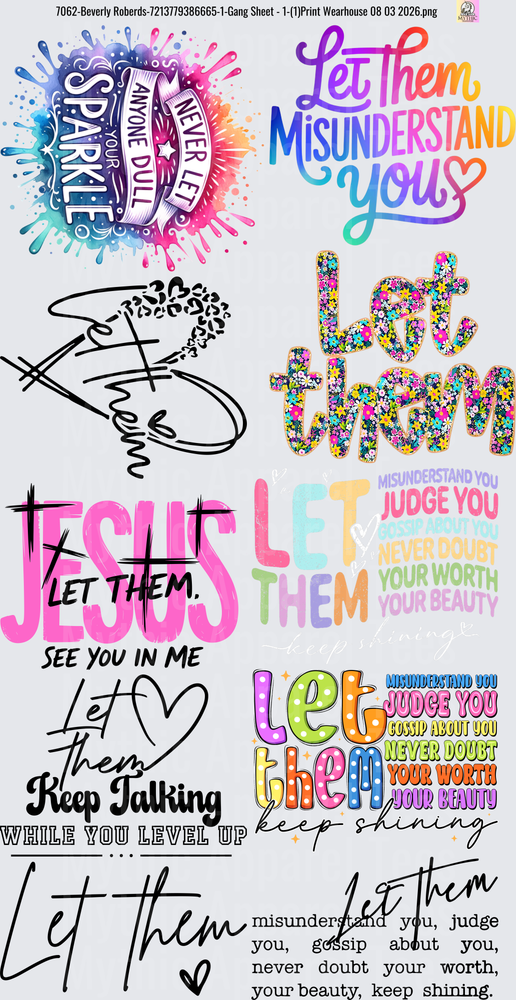 7062-Beverly Roberds-7213779386665-1-Gang Sheet - 1-(1)Print Wearhouse 08 03 2026.png
MYTHIC
NEVER LET
ANYONE DULL
YOUR
SPARKLE
Let Them
MISUNDERSTAND
you
Let Them
Let
them
JESUS
LET THEM.
SEE YOU IN ME
LET
THEM
MISUNDERSTAND YOU
JUDGE YOU
GOSSIP ABOUT YOU
NEVER DOUBT
YOUR WORTH
YOUR BEAUTY
keep shining
Let
them
Keep Talking
WHILE YOU LEVEL UP
Let
them
MISUNDERSTAND YOU
JUDGE YOU
GOSSIP ABOUT YOU
NEVER DOUBT
YOUR WORTH
YOUR BEAUTY
keep shining
Let them
Let Them
misunderstand you, judge
you, gossip about you,
never doubt your worth,
your beauty, keep shining.